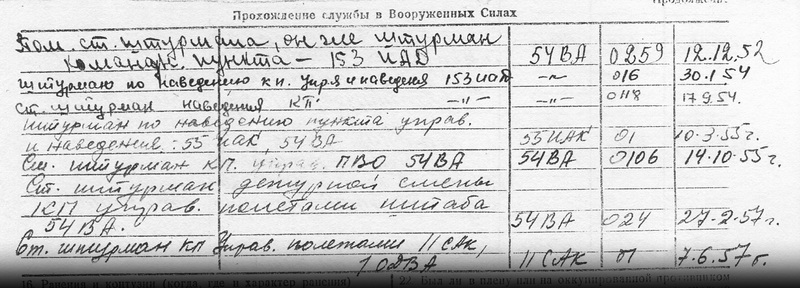 Прохождение службы в Вооруженных Силах
Пом. ст. штурмана, он же штурман
команд. пункта – 153 ИАД 54ВА 0259 12.12.52
штурман по наведению кп. Упр. и наведения 153 иад –"– 016 30.1.54
Ст. штурман наведения КП –"– –"– 0118 17.9.54.
штурман по наведению пункта управ.
и наведения: 55 ИАК, 54ВА 55 ИАК 01 10.3.55г.
См. штурман КП. управ. ПВО 54ВА 54ВА 0106 14.10.55г.
Ст. штурман дежурной смены
КП управ. полетами штаба
54ВА. 54ВА 024 27.2.57г.
Ст. штурман КП Управ. полетами 11 САК,
1 ОДВА 11 САК 01 7.6.57г.
16. Ранения и контузии (когда, где и характер ранения)
Был ли в плену или на оккупированной противником